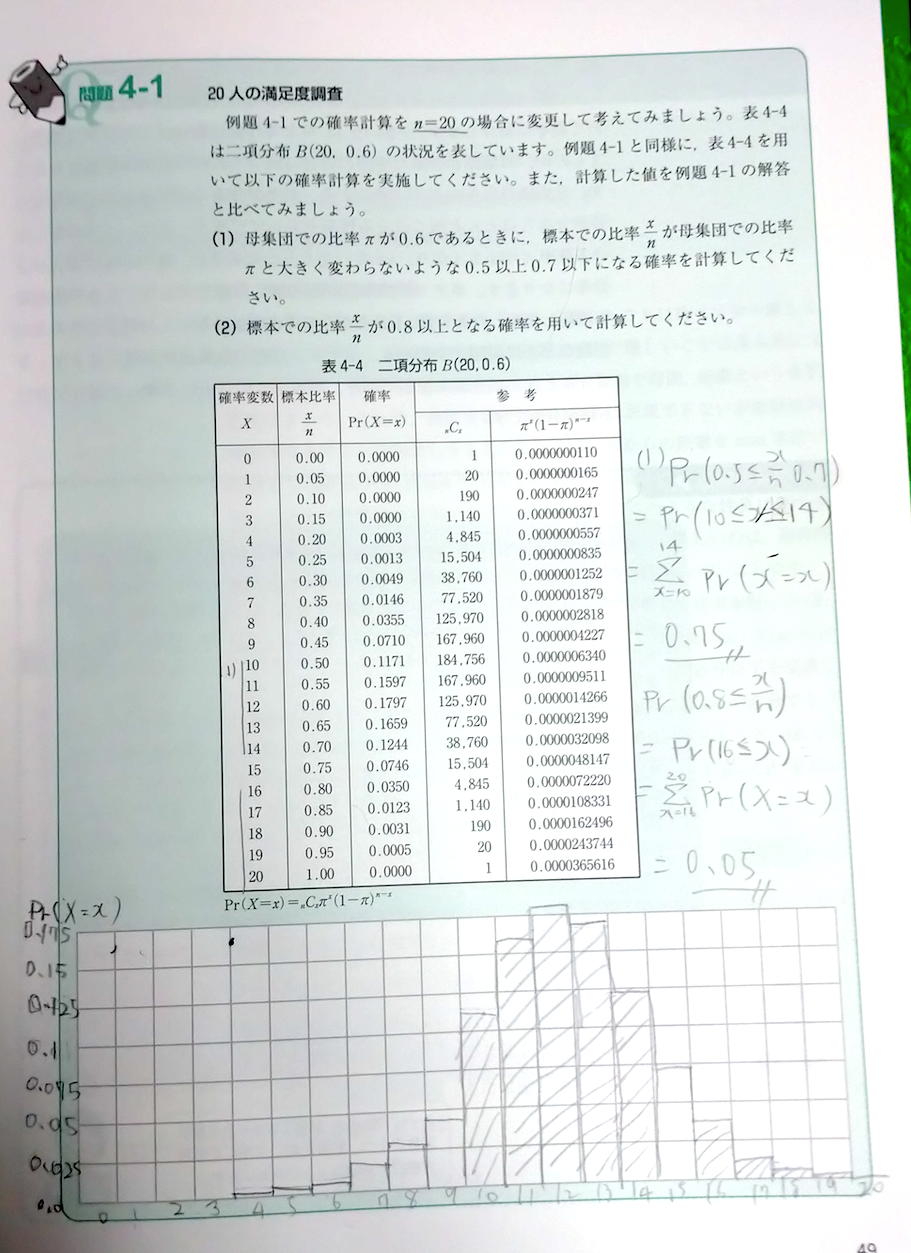 問題 4-1 20人の満足度調査
例題4-1での確率計算をn=20の場合に変更して考えてみましょう。表4-4
は二項分布B(20, 0.6)の状況を表しています。例題4-1と同様に，表4-4を用
いて以下の確率計算を実施してください。また，計算した値を例題4-1の解答
と比べてみましょう。
(1) 母集団での比率πが0.6であるときに，標本での比率x/nが母集団での比率
πと大きく変わらないような0.5以上0.7以下になる確率を計算してくだ
さい。
(2) 標本での比率x/nが0.8以上となる確率を用いて計算してください。
表4-4 二項分布B(20,0.6)
確率変数 標本比率 確率 参考
X x/n Pr(X=x) nCx π^x(1−π)^n−x
0 0.00 0.0000 1 0.0000000110
1 0.05 0.0000 20 0.0000000165
2 0.10 0.0000 190 0.0000000247
3 0.15 0.0000 1,140 0.0000000371
4 0.20 0.0003 4,845 0.0000000557
5 0.25 0.0013 15,504 0.0000000835
6 0.30 0.0049 38,760 0.0000001252
7 0.35 0.0146 77,520 0.0000001879
8 0.40 0.0355 125,970 0.0000002818
9 0.45 0.0710 167,960 0.0000004227
1) 10 0.50 0.1171 184,756 0.0000006340
11 0.55 0.1597 167,960 0.0000009511
12 0.60 0.1797 125,970 0.0000014266
13 0.65 0.1659 77,520 0.0000021399
14 0.70 0.1244 38,760 0.0000032098
15 0.75 0.0746 15,504 0.0000048147
16 0.80 0.0350 4,845 0.0000072220
17 0.85 0.0123 1,140 0.0000108331
18 0.90 0.0031 190 0.0000162496
19 0.95 0.0005 20 0.0000243744
20 1.00 0.0000 1 0.0000365616
Pr(X=x)=nCxπ^x(1−π)^n−x
(1) Pr(0.5≦x/n 0.7)
= Pr(10≦x≦14)
= 14 Σ x=10 Pr(x=x)
= 0.75
Pr(0.8≦x/n)
= Pr(16≦x)
= 20 Σ x=16 Pr(X=x)
= 0.05
Pr(X=x)
0.175
0.15
0.125
0.1
0.075
0.05
0.025
0.0
0 1 2 3 4 5 6 7 8 9 10 11 12 13 14 15 16 17 18 19 20
49